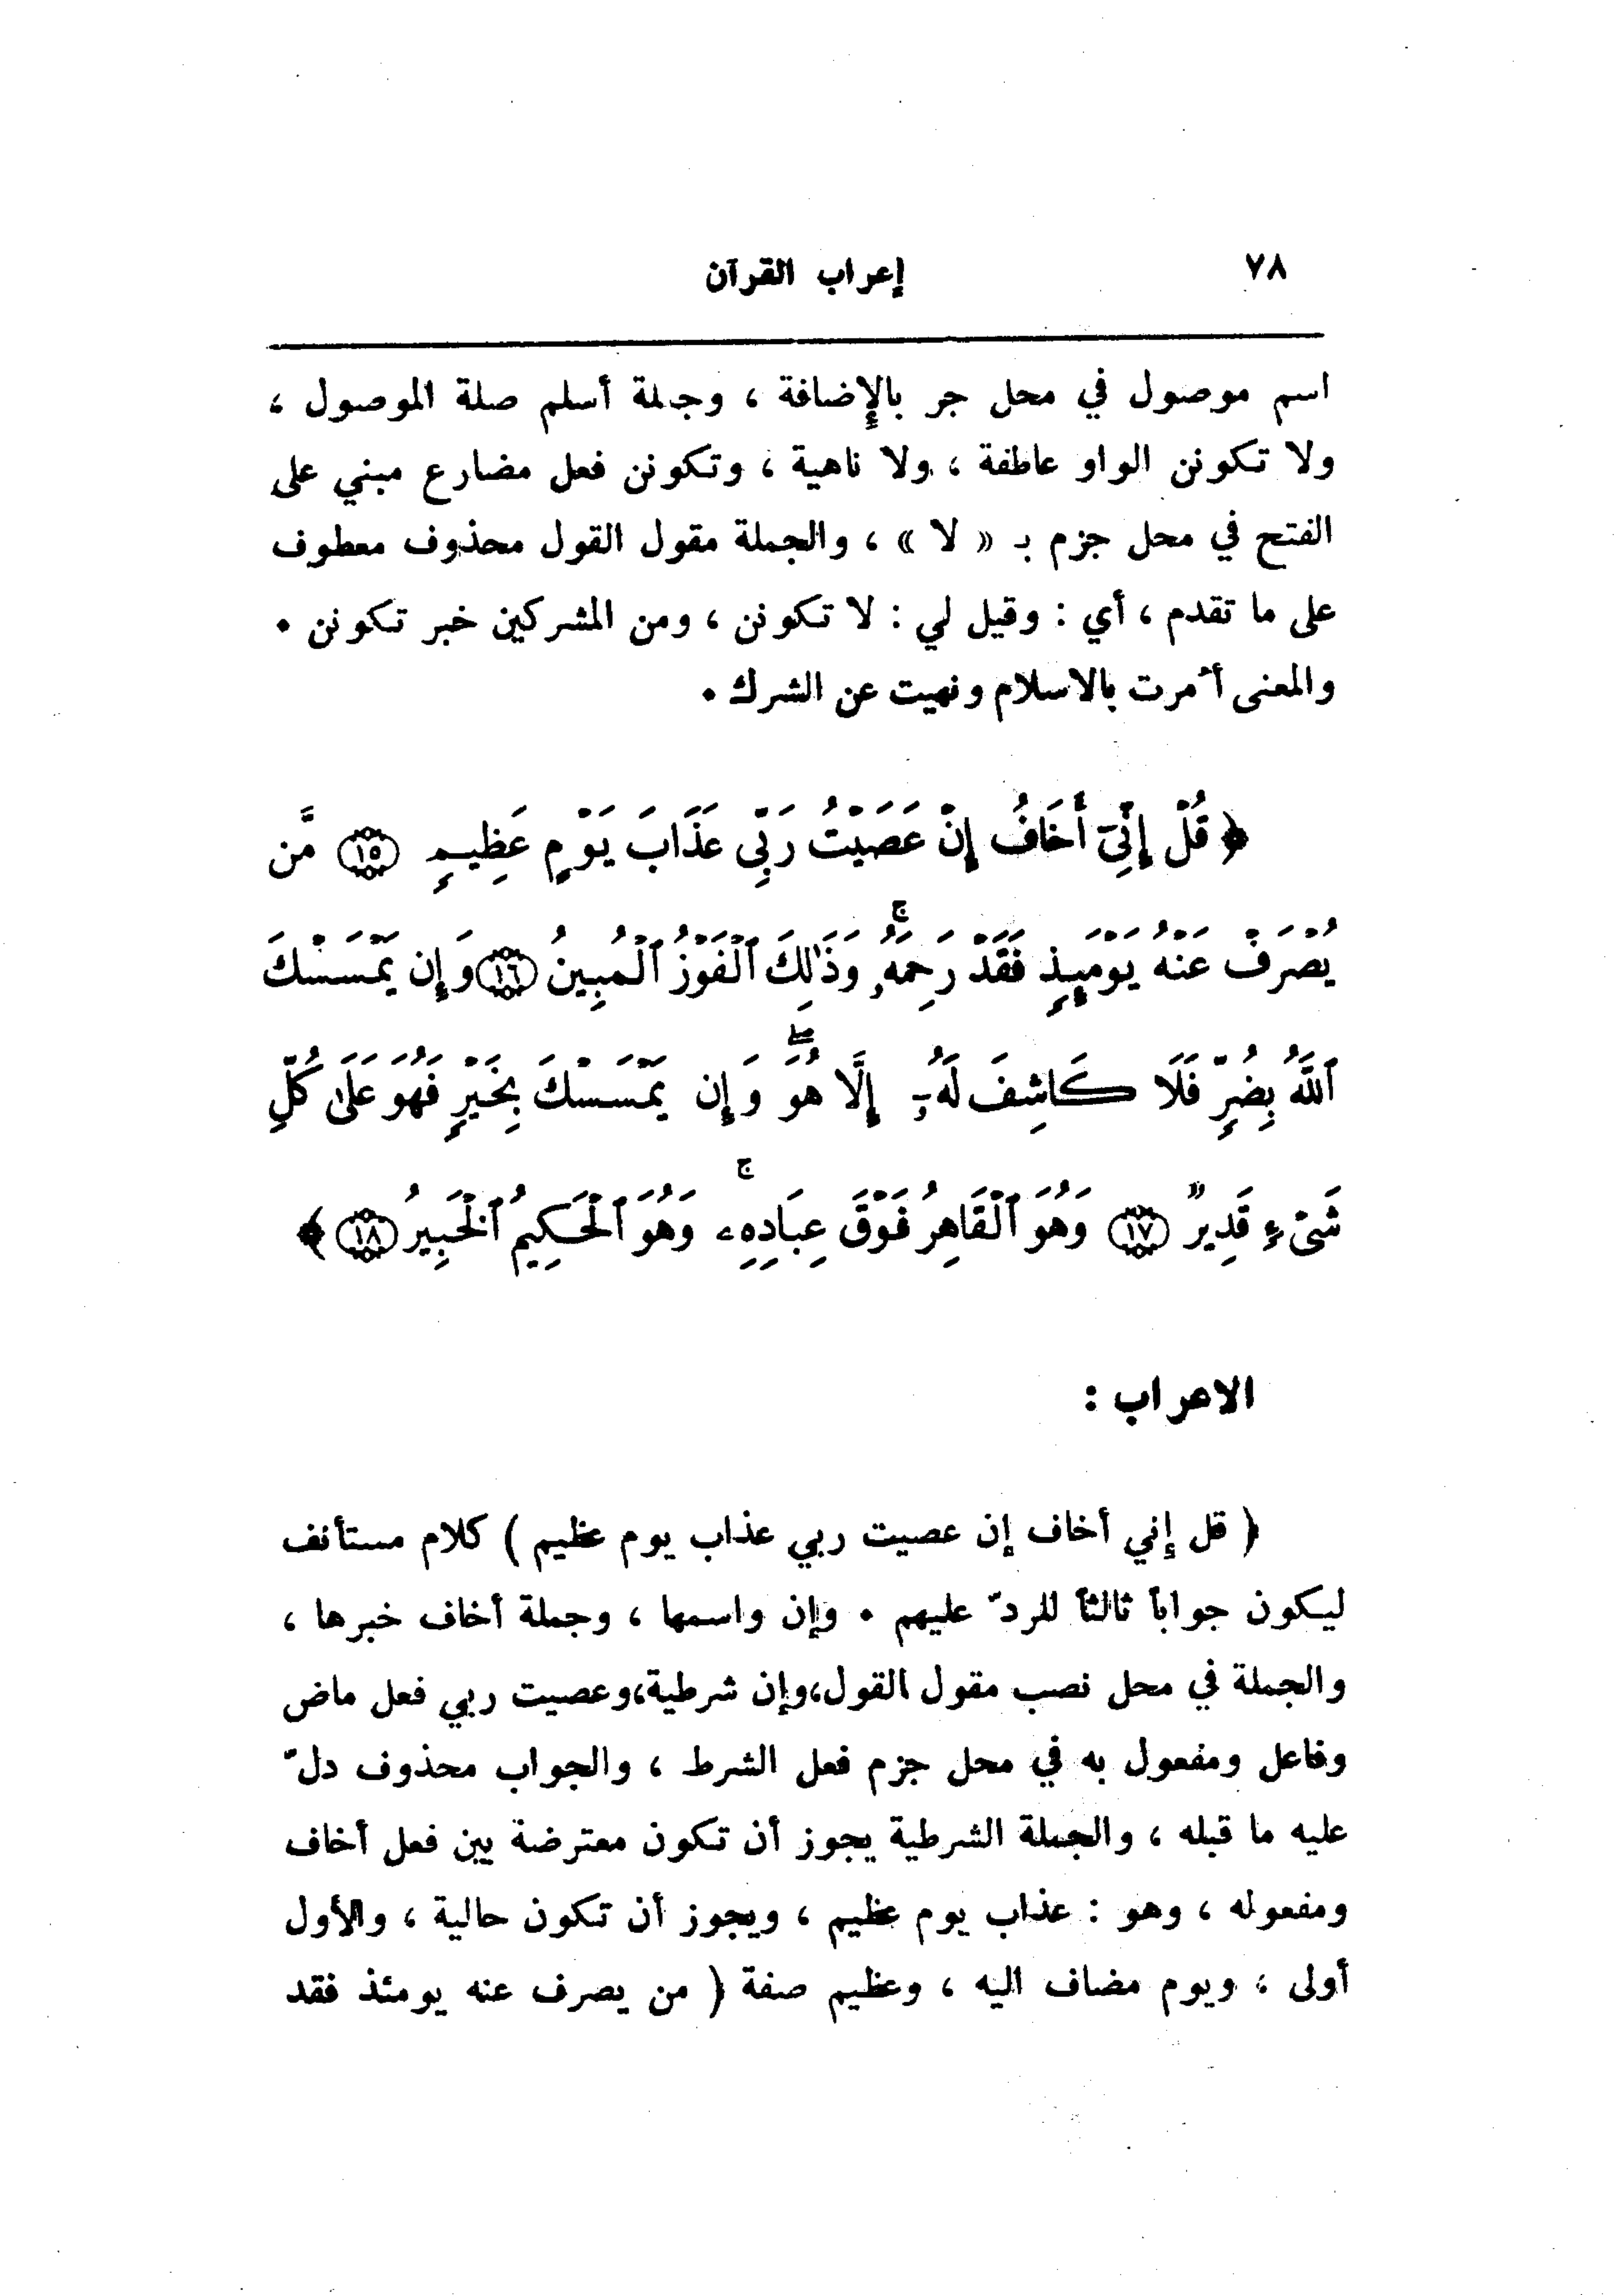 ٧٨
إعراب القرآن
اسم موصول في محل جر بالإضافة ، وجملة أسلم صلة الموصول ،
ولا تكونن الواو عاطفة ، ولا ناهية ، وتكونن فعل مضارع مبني على
الفتح في محل جزم بـ « لا » ، والجملة مقول القول محذوف معطوف
على ما تقدم ، أي : وقيل لي : لا تكونن ، ومن المشركين خبر تكونن .
والمعنى أُمرت بالاسلام ونهيت عن الشرك .
﴿ قُلْ إِنِّىٓ أَخَافُ إِنْ عَصَيْتُ رَبِّى عَذَابَ يَوْمٍ عَظِيمٍ ﴿١٥﴾ مَّن
يُصْرَفْ عَنْهُ يَوْمَئِذٍ فَقَدْ رَحِمَهُۥ ۚ وَذَٰلِكَ ٱلْفَوْزُ ٱلْمُبِينُ ﴿١٦﴾ وَإِن يَمْسَسْكَ
ٱللَّهُ بِضُرٍّ فَلَا كَاشِفَ لَهُۥٓ إِلَّا هُوَ ۖ وَإِن يَمْسَسْكَ بِخَيْرٍ فَهُوَ عَلَىٰ كُلِّ
شَىْءٍ قَدِيرٌ ﴿١٧﴾ وَهُوَ ٱلْقَاهِرُ فَوْقَ عِبَادِهِۦ ۚ وَهُوَ ٱلْحَكِيمُ ٱلْخَبِيرُ ﴿١٨﴾ ﴾
الاعراب :
( قل إني أخاف إن عصيت ربي عذاب يوم عظيم ) كلام مستأنف
ليكون جواباً ثالثاً للردّ عليهم . وإن واسمها ، وجملة أخاف خبرها ،
والجملة في محل نصب مقول القول،وإن شرطية،وعصيت ربي فعل ماض
وفاعل ومفعول به في محل جزم فعل الشرط ، والجواب محذوف دلّ
عليه ما قبله ، والجملة الشرطية يجوز أن تكون معترضة بين فعل أخاف
ومفعوله ، وهو : عذاب يوم عظيم ، ويجوز أن تكون حالية ، والأول
أولى ، ويوم مضاف اليه ، وعظيم صفة ( من يصرف عنه يومئذ فقد